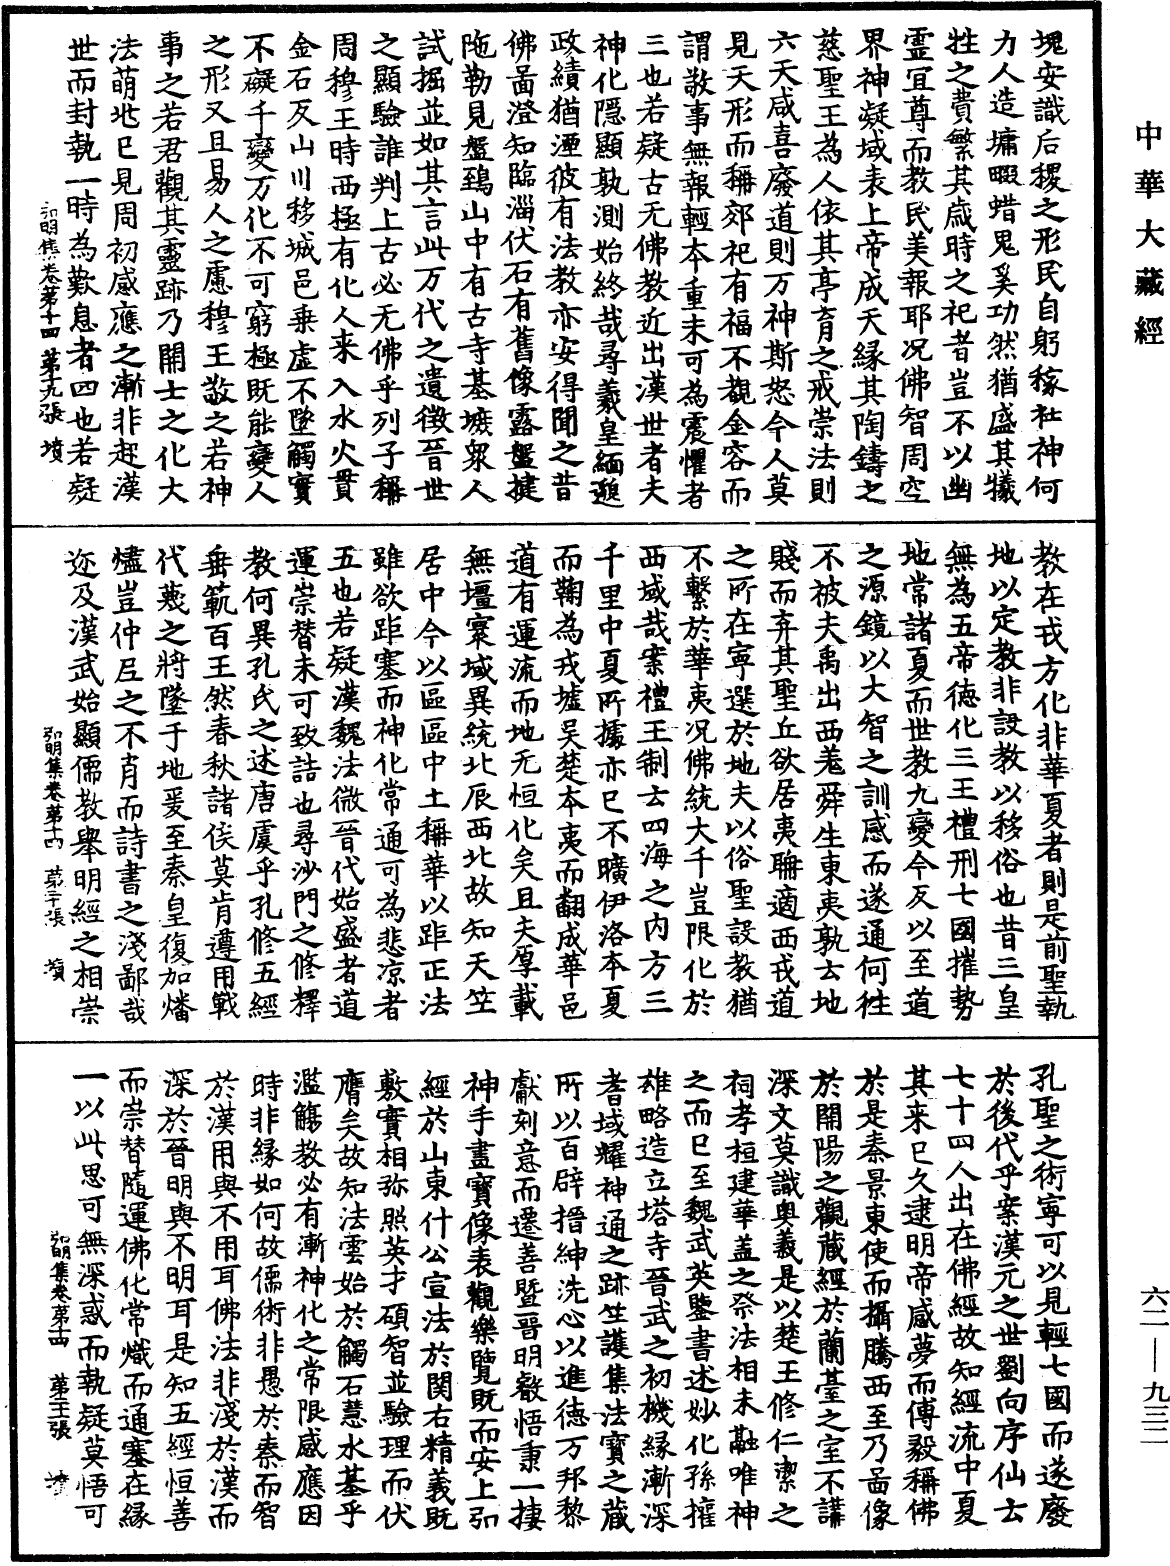 中華大藏經
塊安識后稷之形民自躬稼社神何
力人造墉畷蜡鬼奚功然猶盛其犧
牲之費繁其歲時之祀者豈不以幽
霊宜尊而教民美報耶况佛智周空
界神凝域表上帝成天緣其陶鑄之
慈聖王為人依其亭育之戒崇法則
六天咸喜廢道則万神斯怒今人莫
見天形而稱郊祀有福不覩金容而
謂敬事無報輕本重末可為震懼者
三也若疑古无佛教近出漢世者夫
神化隱顯孰測始終哉尋羲皇緬邈
政績猶湮彼有法教亦安得聞之昔
佛啚澄知臨淄伏石有舊像露盤揵
陁勒見盤鵄山中有古寺基墌衆人
試掘並如其言此万代之遺徵晉世
之顯驗誰判上古必无佛乎列子稱
周穆王時西極有化人来入水火貫
金石反山川移城邑乗虛不墜觸實
不礙千變万化不可窮極既能變人
之形又且易人之慮穆王敬之若神
事之若君觀其靈跡乃開士之化大
法萌兆已見周初感應之漸非起漢
世而封執一時為歎息者四也若疑
弘明集卷第十四 第十九張 墳
教在戎方化非華夏者則是前聖執
地以定教非設教以移俗也昔三皇
無為五帝德化三王禮刑七國摧勢
地常諸夏而世教九變今反以至道
之源鏡以大智之訓感而遂通何往
不被夫禹出西羌舜生東夷孰云地
賤而弃其聖丘欲居夷聃適西戎道
之所在寧選於地夫以俗聖設教猶
不繫於華夷况佛統大千豈限化於
西域哉案禮王制云四海之内方三
千里中夏所據亦已不曠伊洛本夏
而鞠為戎墟吴楚本夷而翻成華邑
道有運流而地无恒化矣且夫厚載
無壃寰域異統北辰西北故知天竺
居中今以區區中土稱華以距正法
雖欲距塞而神化常通可為悲凉者
五也若疑漢魏法微晉代始盛者道
運崇替未可致詰也尋沙門之修釋
教何異孔氏之述唐虞乎孔修五經
垂範百王然春秋諸侯莫肯遵用戰
代蔑之將墜于地爰至秦皇復加燔
燼豈仲尼之不肖而詩書之淺鄙哉
迩及漢武始顯儒教舉明經之相崇
弘明集卷第十四 第二十張 墳
孔聖之術寧可以見輕七國而遂廢
於後代乎案漢元之世劉向序仙云
七十四人出在佛經故知經流中夏
其来已久逮明帝感夢而傅毅稱佛
於是秦景東使而攝騰西至乃啚像
於開陽之觀蔵經於蘭臺之室不講
深文莫識奥義是以楚王修仁潔之
祠孝桓建華盖之祭法相未融唯神
之而已至魏武英鑒書述妙化孫擁
雄略造立塔寺晉武之初機緣漸深
耆域耀神通之跡竺護集法寶之蔵
所以百辟搢紳洗心以進德万邦黎
獻刻意而遷善暨晋明叡悟秉一捿
神手畫寶像表觀樂覽既而安上弘
經於山東什公宣法於関右精義既
敷實相弥照英才碩智並驗理而伏
膺矣故知法雲始於觸石慧水基乎
濫觴教必有漸神化之常限感應因
時非緣如何故儒術非愚於秦而智
於漢用與不用耳佛法非淺於漢而
深於晉明與不明耳是知五經恒善
而崇替隨運佛化常熾而通塞在緣
一以此思可無深惑而執疑莫悟可
弘明集卷第十四 第二十一張 墳
六二—九三二